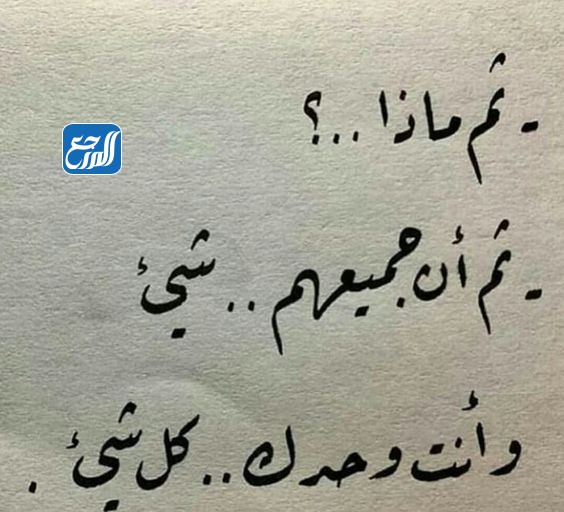 - ثم ماذا ...؟
المرجع
- ثم أن جميعهم .. شيئ
وأنت وحدك .. كل شيئ .